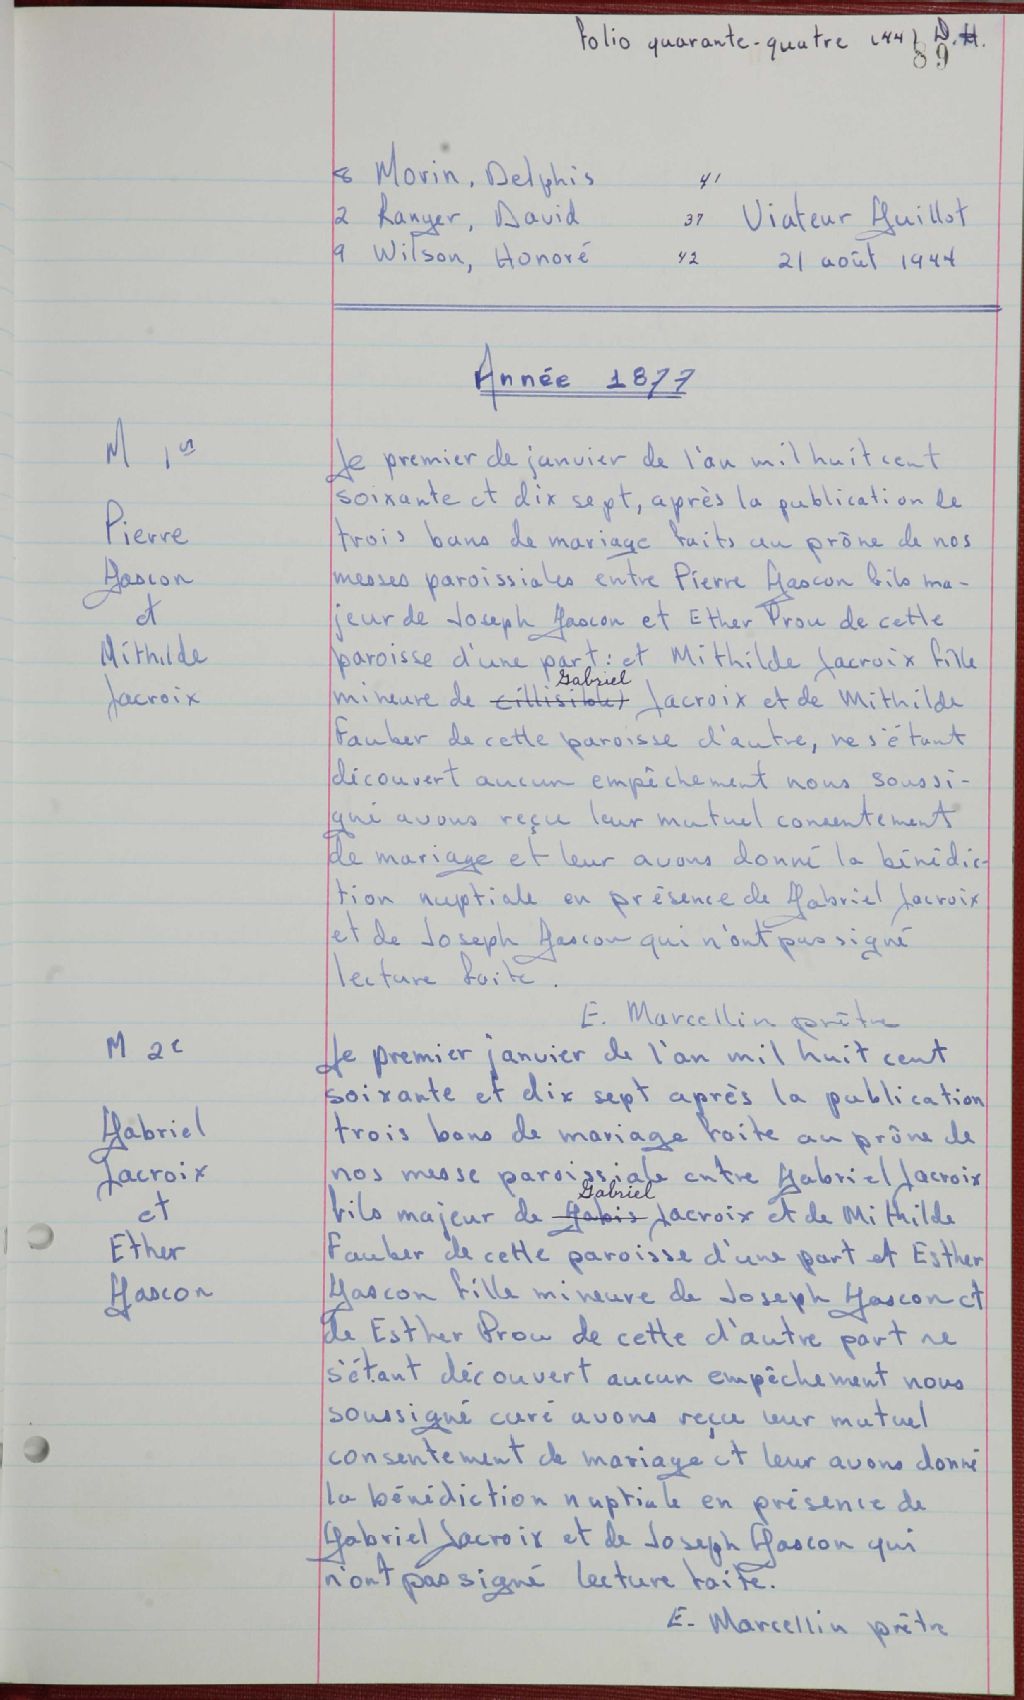 Folio quarante-quatre (44) D.H.
89
8 Morin, Delphis 41
2 Ranger, David 37 Viateur Guillot
9 Wilson, Honoré 42 21 août 1944
Année 1877
M 1er
Pierre
Gascon
et
Mithilde
Lacroix
Le premier de janvier de l'an mil huit cent
soixante et dix sept, après la publication de
trois bans de mariage faits au prône de nos
messes paroissiales entre Pierre Gascon fils ma-
jeur de Joseph Gascon et Ether Prou de cette
paroisse d'une part: et Mithilde Lacroix fille
Gabriel
mineure de (illisible) Lacroix et de Mithilde
Fauber de cette paroisse d'autre, ne s'étant
découvert aucun empêchement nous soussi-
gné avons reçu leur mutuel consentement
de mariage et leur avons donné la bénédic-
tion nuptiale en présence de Gabriel Lacroix
et de Joseph Gascon qui n'ont pas signé
lecture faite.
E. Marcellin prêtre
M 2e
Gabriel
Lacroix
et
Ether
Gascon
Le premier janvier de l'an mil huit cent
soixante et dix sept après la publication
trois bans de mariage faite au prône de
nos messe paroissiale entre Gabriel Lacroix
Gabriel
fils majeur de Gabis Lacroix et de Mithilde
Fauber de cette paroisse d'une part et Esther
Gascon fille mineure de Joseph Gascon et
de Esther Prou de cette d'autre part ne
s'étant découvert aucun empêchement nous
soussigné curé avons reçu leur mutuel
consentement de mariage et leur avons donné
la bénédiction nuptiale en présence de
Gabriel Lacroix et de Joseph Gascon qui
n'ont pas signé lecture faite.
E. Marcellin prêtre